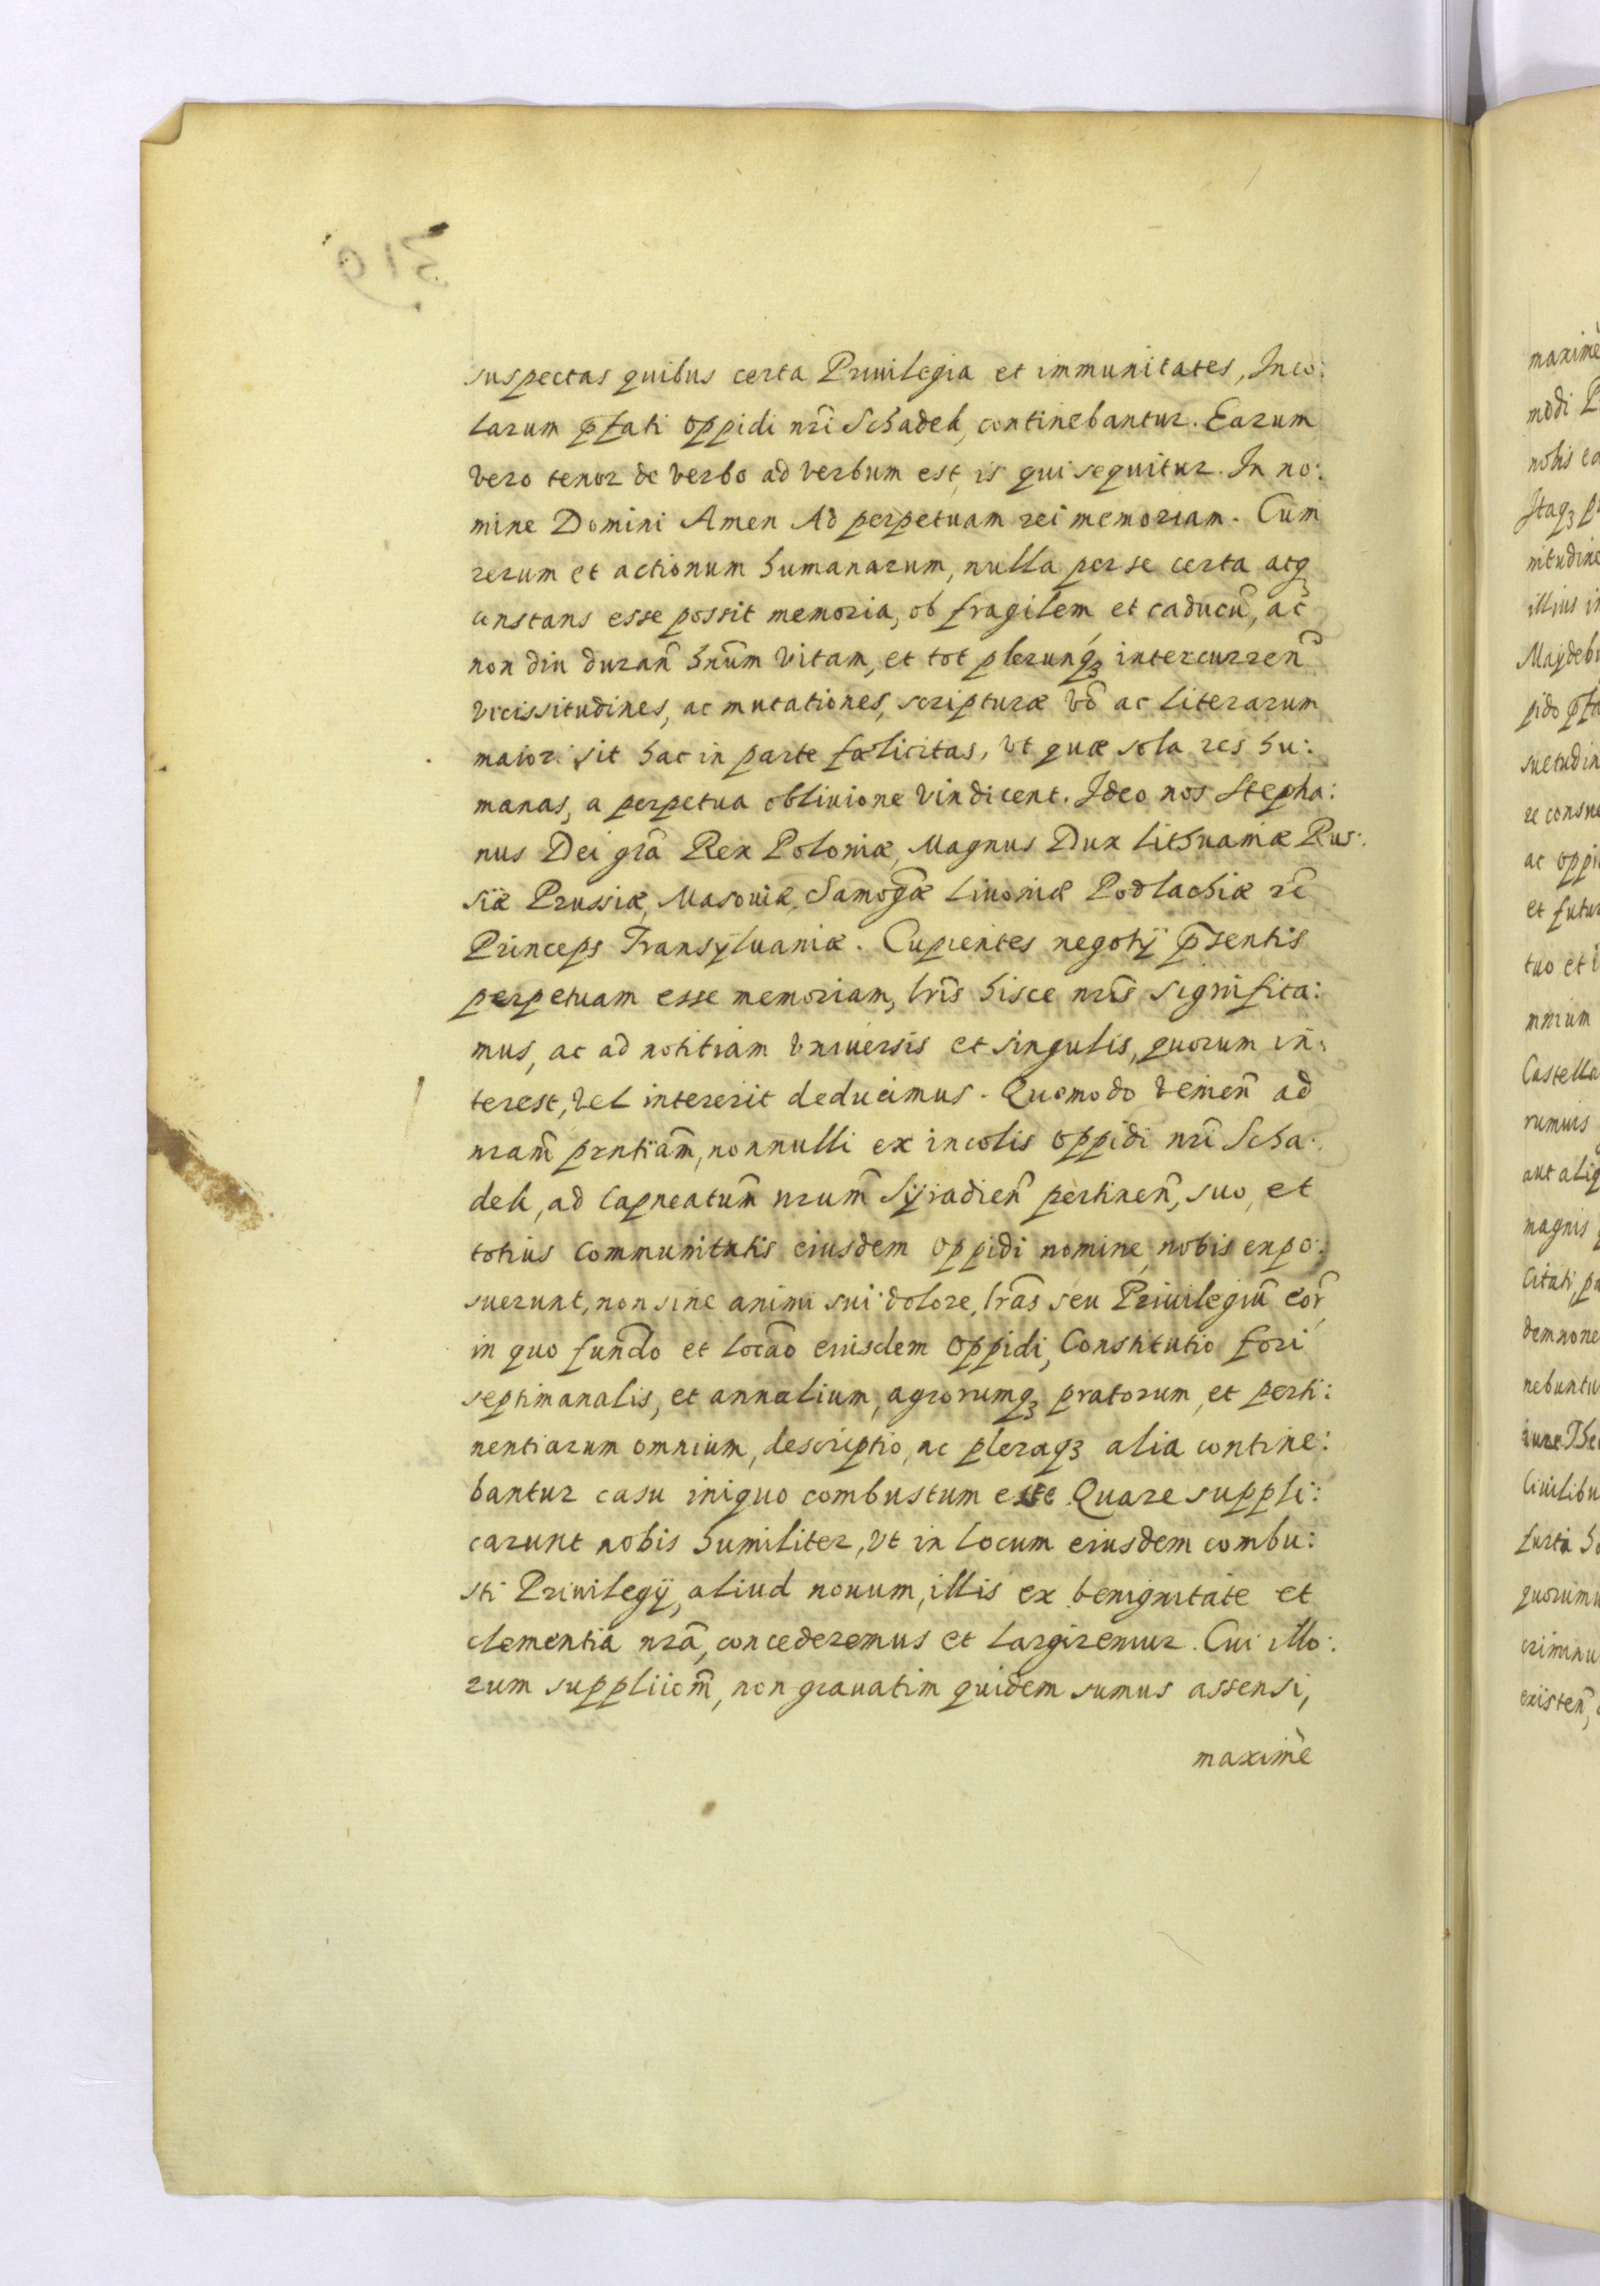 suspectas quibus certa Priuilegia et immunitates, Inco:
larum p̄fati oppidi nr̃i Schadek, continebantur. Earum
vero tenor de verbo ad verbum est, is qui sequitur. In no:
mine Domini Amen Ad perpetuam rei memoriam. Cum
rerum et actionum humanarum, nulla per se certa atq
constans esse possit memoria, ob fragilem et caducũ, ac
non diu durañ hnũm vitam, et tot plerunqꝫ intercurreñ
vicissitudines, ac mutationes, scripturæ võ ac literarum
maior sit hac in parte fœlicitas, vt quæ sola res hu:
manas, a perpetua obliuione vindicent. Ideo nos Stepha:
nus Dei grã Rex Poloniæ, Magnus Dux Lithuaniæ Rus:
siæ Prussiæ, Masouiæ, Samog̃æ Liuoniæ Podlachiæ rc̃
Princeps Transyluaniæ. Cupientes negotÿ p̄sentis
perpetuam esse memoriam, lrĩs hisce nrĩs significa:
mus, ac ad notitiam vniuersis et singulis, quorum in:
terest, vel intererit deducimus. Quomodo venieñ ad
nram̃ prntiam̃, nonnulli ex incolis oppidi nrĩ Scha:
dek, ad Capneatum̃ nrum̃ Syradieñ pertineñ, suo, et
totius communitatis eiusdem oppidi nomine, nobis expo:
suerunt, non sine animi sui dolore, lrãs seu Priuilegiũ eor̃
in quo fundõ et locaõ eiusdem oppidi, Constitutio fori
septimanalis, et annalium, agrorumqꝫ pratorum, et perti:
nentiarum omnium, descriptio, ac pleraqꝫ alia contine:
bantur casu iniquo combustum esse. Quare suppli:
carunt nobis humiliter, vt in locum eiusdem combu:
sti Priuilegÿ, aliud nouum, illis ex benignitate et
clementia nrã, concederemus et largiremur. Cui illo:
rum suppliciom̃, non grauatim quidem sumus assensi,
maximè
319
maximè
modi
nobis
Itaqꝫ
nitudine
illius
pido
suetudin
re
ac
et futur
tuo et
mnium
Castella
rumuis
aut
magnis
Citati,
dem
nebuntu
iure
Ciuilibu
furti
quorum
crimin
existeñ,